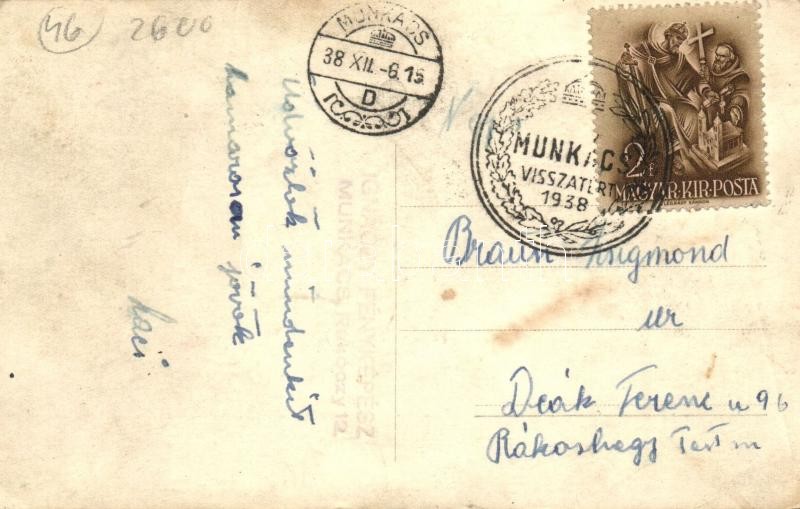 46 2600
MUNKÁCS
38 XII. -6. 15
D
MUNKÁCS
VISSZATÉRT
1938
2f
MAGYAR·KIR·POSTA
Üdvözlök mindenkit
hamarosan jövök
Laci
FÉNYKÉPÉSZ
MUNKÁCS, Rákóczy 12.
Braun Zsigmond
úr
Deák Ferenc u 96
Rákoshegy